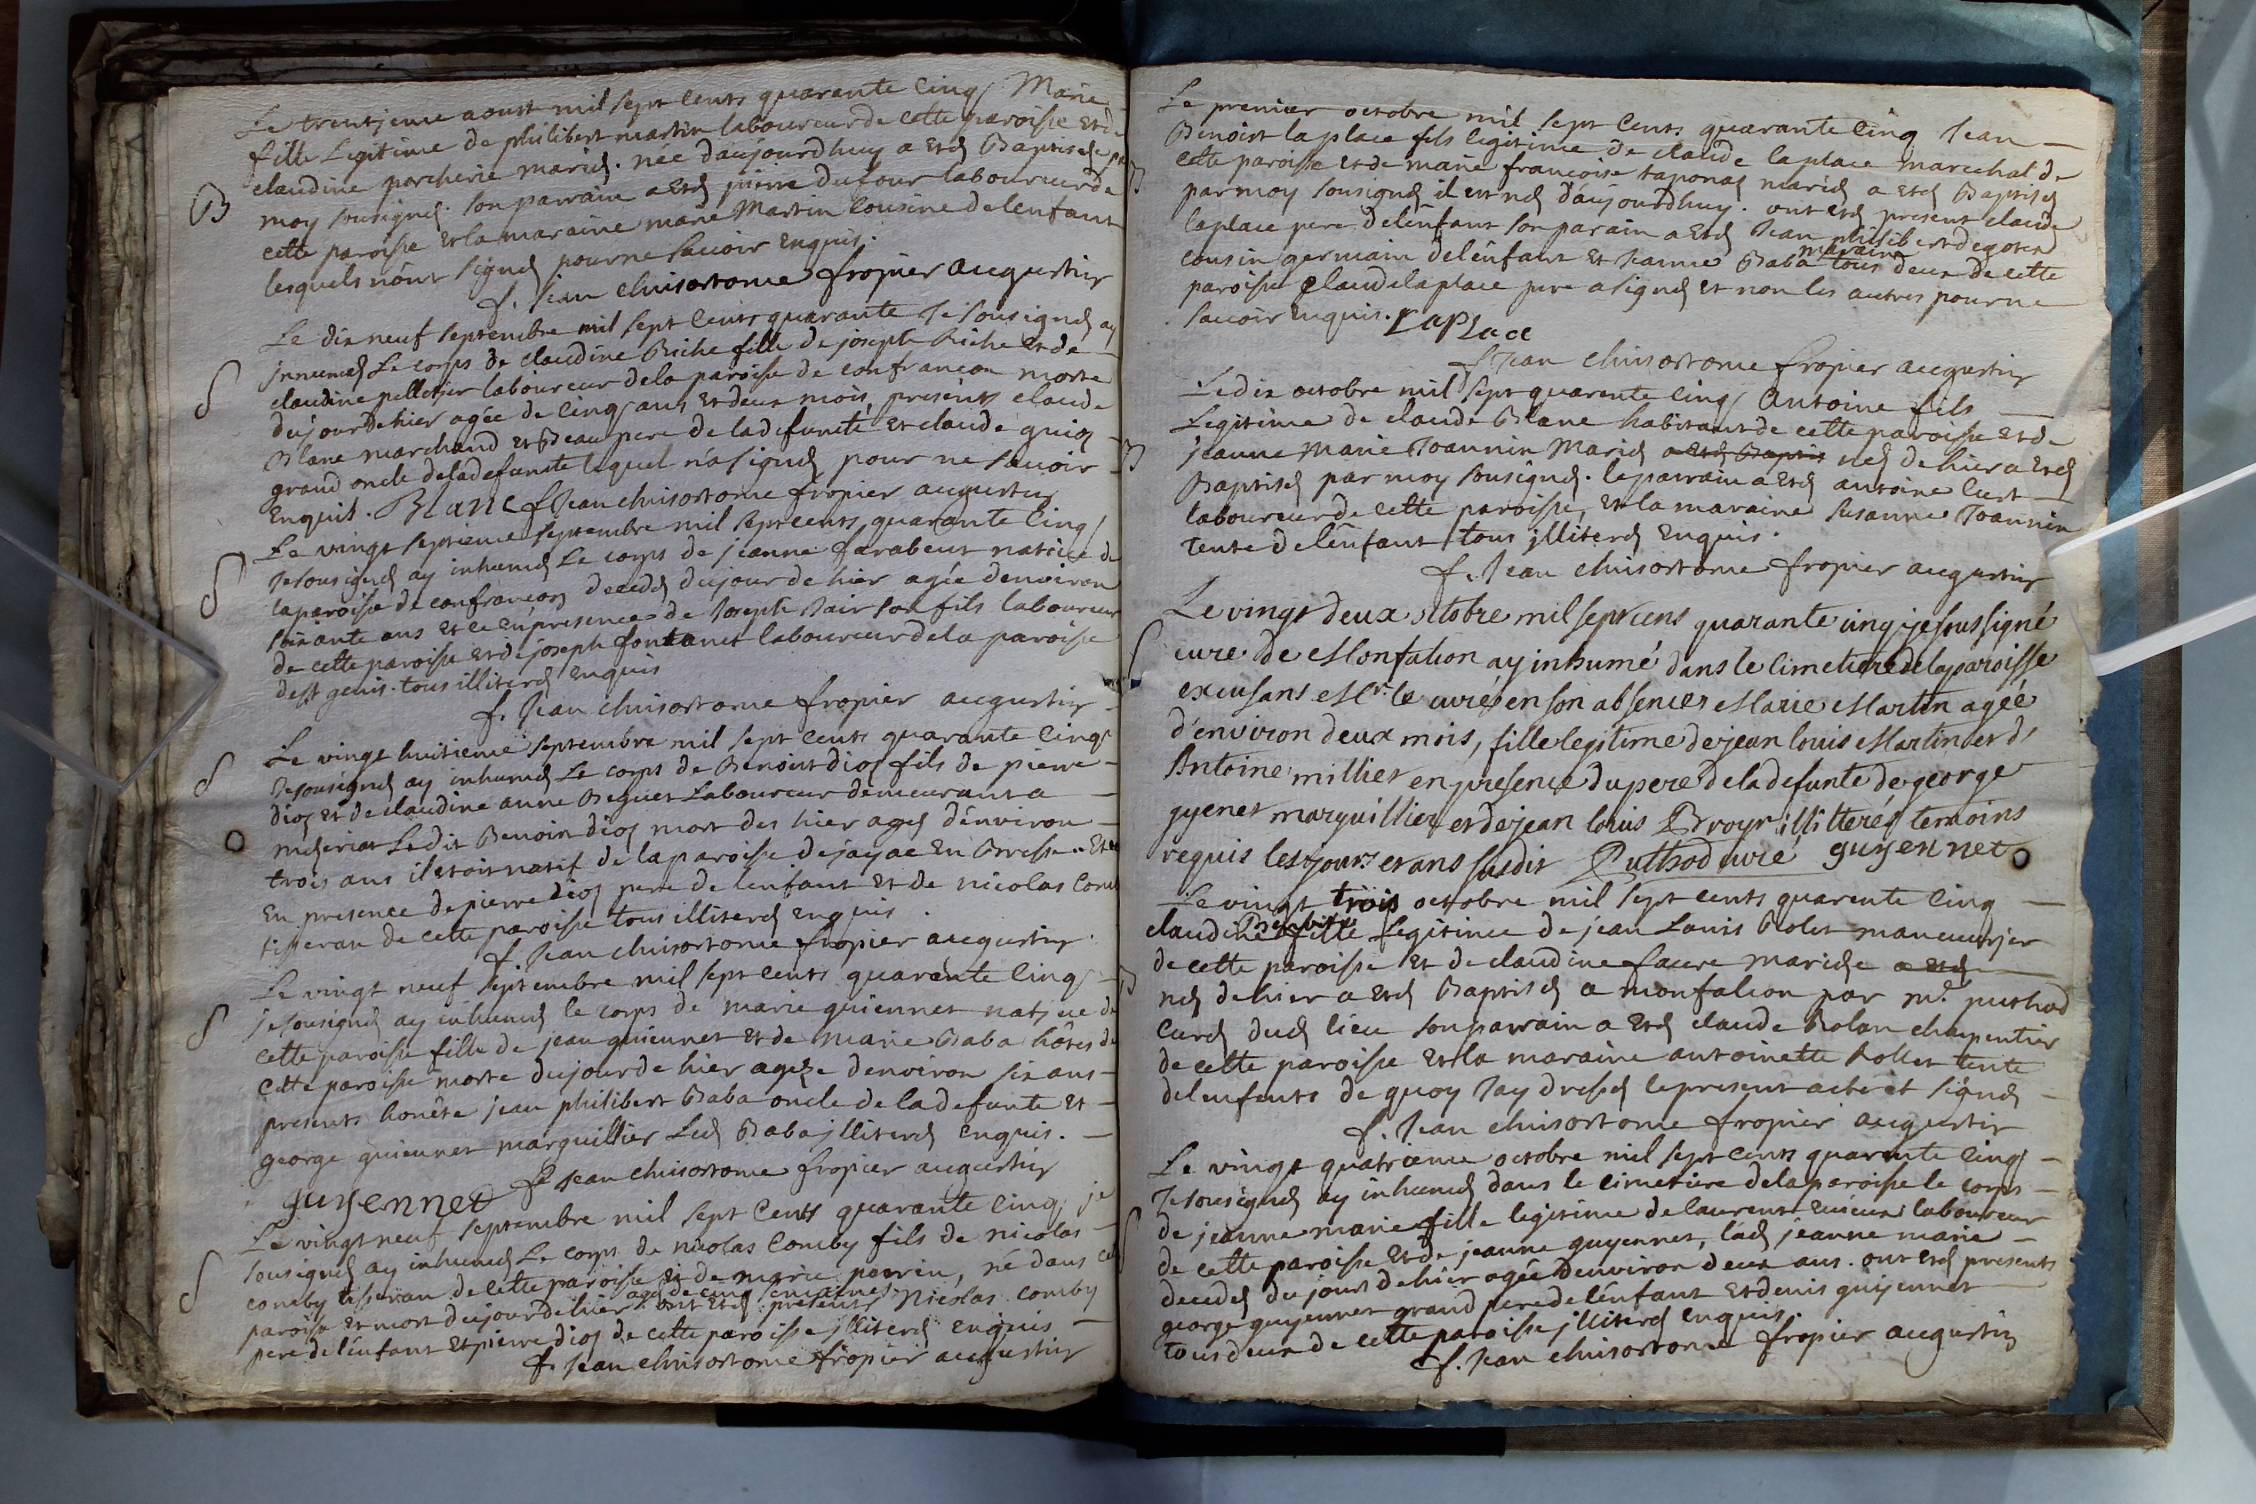 Le trentjeme aoust mil sept cents quarante cinq Marie
fille Legitime de philibert martin laboureur de cette paroisse et de
claudine porcherie mariés. née d'aujourdhuy a eté Baptisée par
B
moy sousigné. son parrain a eté pierre dufour laboureur de
cette paroisse et la maraine marie Martin cousine de lenfant
lesquels n'ont signé pour ne savoir enquis.
f. Jean chrisostome fropier augustin
Le dix neuf septembre mil sept cents quarante Je sousigné ay
jnnumé Le corps de claudine Riche fille de joseph Riche et de
S
claudine pelletjer laboureur de la paroisse de confrancon morte
dujour de hier agée de cinq ans et deux mois, présents claude
Blanc marchand et Beau pere de la defuncte et claude guion
grand oncle de la defuncte lequel n'a signé pour ne savoir
enquis. Blanc f Jean chrisostome fropier augustin
Le vingt septieme septembre mil sept cents quarante cinq
Je sousigné ay inhumé Le corps de jeanne farabeut native de
S
la paroisse de confrancon decedé dujour de hier agée d'environ
soixante ans et ce en presence de Joseph Jair son fils laboureur
de cette paroisse et de joseph fontanet laboureur de la paroisse
de st genis. tous illiteré enquis
f. Jean chrisostome fropier augustin
Le vingt huitieme septembre mil sept cents quarante cinq
S
Je sousigné ay inhumé Le corps de Benoist dion fils de pierre
dion et de claudine anne Beguet Laboureur demeurant a
méseriat Ledit Benoin dion mort des hier agé d'environ
trois ans il etoit natif de la paroisse de jayac en Bresse. Et ce
En presence de pierre dion pere de lenfant et de nicolas Comby
tisseran de cette paroisse tous illiteré enquis.
f Jean chrisostome fropier augustin.
Le vingt neuf septembre mil sept cents quarente cinq
S
je sousigné ay inhumé le corps de marie guiennet natjve de
cette paroisse fille de jean guiennet et de marie Baba hôtes de
cette paroisse morte dujour de hier agée d'environ six ans
presents honête jean philibert Baba oncle de la defunte et
george guiennet marguillier Led Baba jlliteré enquis.
guyennet f Jean chrisostome fropier augustin
Le vingt neuf septembre mil sept Cents quarante cinq je
sousigné ay inhumé Le corps de nicolas Comby fils de nicolas
S
comby tisseran de cette paroisse et de marie perrin, né dans cette
agé de cinq semaines
paroisse et mort dujour de hier ont eté presents Nicolas comby
pere de l'enfant et pierre dion de cette paroisse jlliteré enquis
f. Jean chrisostome fropier augustin
Le premier octobre mil sept cents quarante cinq Jean
Benoist la place fils legitime de claude la place marechal de
B
cette paroisse et de marie francoise taponas mariés a eté Baptisé
par moy sousigné il est né d'aujourdhuy. ont eté present claude
laplace pere de lenfant son parain a eté Jean philibert degoter
maraine
cousin germain de l'enfant et Jeanne Baba tous deux de cette
paroisse claude laplace pere a signé et non les autres pour ne
savoir enquis. LaPLace
f Jean chrisostome fropier augustin
Le dix octobre mil sept quarente cinq Antoine fils
Legitime de claude Blanc habitant de cette paroisse et de
B
jeanne marie Joannin Mariés a eté Baptisé né de hier a eté
Baptisé par moy sousigné. le parrain a eté antoine Curt
laboureur de cette paroisse, et la maraine susanne Joannin
tente de l'enfant tous jlliteré enquis.
f. Jean chrisostome fropier augustin
Le vingt deux octobre mil sept cens quarante cinq je soussigné
S
curé de Monfalcon ay inhumé dans le cimetiere de la paroisse
excusant Mr. le curé en son absence Marie Martin agée
d'environ deux mois, fille legitime de jean louis Martin et d'
Antoine millier en presence du pere de la defunte de george
gyenet marguillier et de jean louis Broyr illitterés temoins
requis les jour et ans susdit Puthod curé guyennet
Le vingt trois octobre mil sept cents quarente cinq
Benoite
claudine fille Legitime de jean Louis Rolet maneuvrjer
de cette paroisse et de claudine faure mariée a eté
B
né de hier a eté Baptisé a monfalcon par mr. puthod
Curé dud lieu son parrain a eté claude Rolan charpentier
de cette paroisse et la maraine antoinette Rollet tente
de l'enfents de quoy Jay dressé le present acte et signé
f. Jean chrisostome fropier augustin
Le vingt quatreme octobre mil sept cents quarente cinq
Je sousigné ay inhumé dans le cimetiere de la paroisse le corps
S
de jeanne marie fille legitime de laurent laboureur
de cette paroisse et de jeanne guyennet, lad jeanne marie
decedé du jour de hier agée d'environ deux ans. ont eté presents
george guyennet grand pere de l'enfant et denis guijennet
tous deux de cette paroisse jlliteré enquis.
f. Jean chrisostome fropier augustin